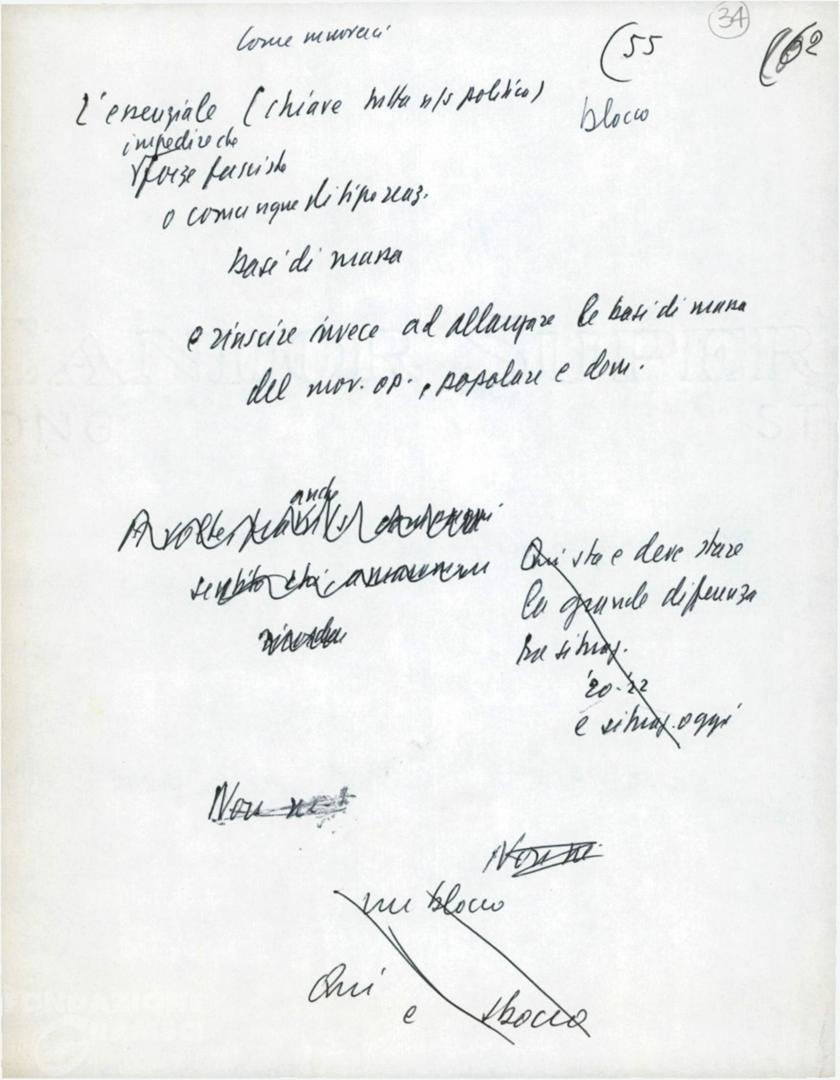 34
Come muoverci
(55
(62
L'essenziale (chiave tutta n/s politica)
blocco
impedire che
forze fasciste
o comunque di tipo reaz.
basi di massa
e riuscire invece ad allargare le basi di massa
del mov. op., popolare e dem.
A volte anche
sentito
ricorda
Qui sta e deve stare
la grande differenza
tra situaz.
'20-'22
e situaz. oggi
Non
Non
un blocco
Qui
e sbocco
FONDAZIONE